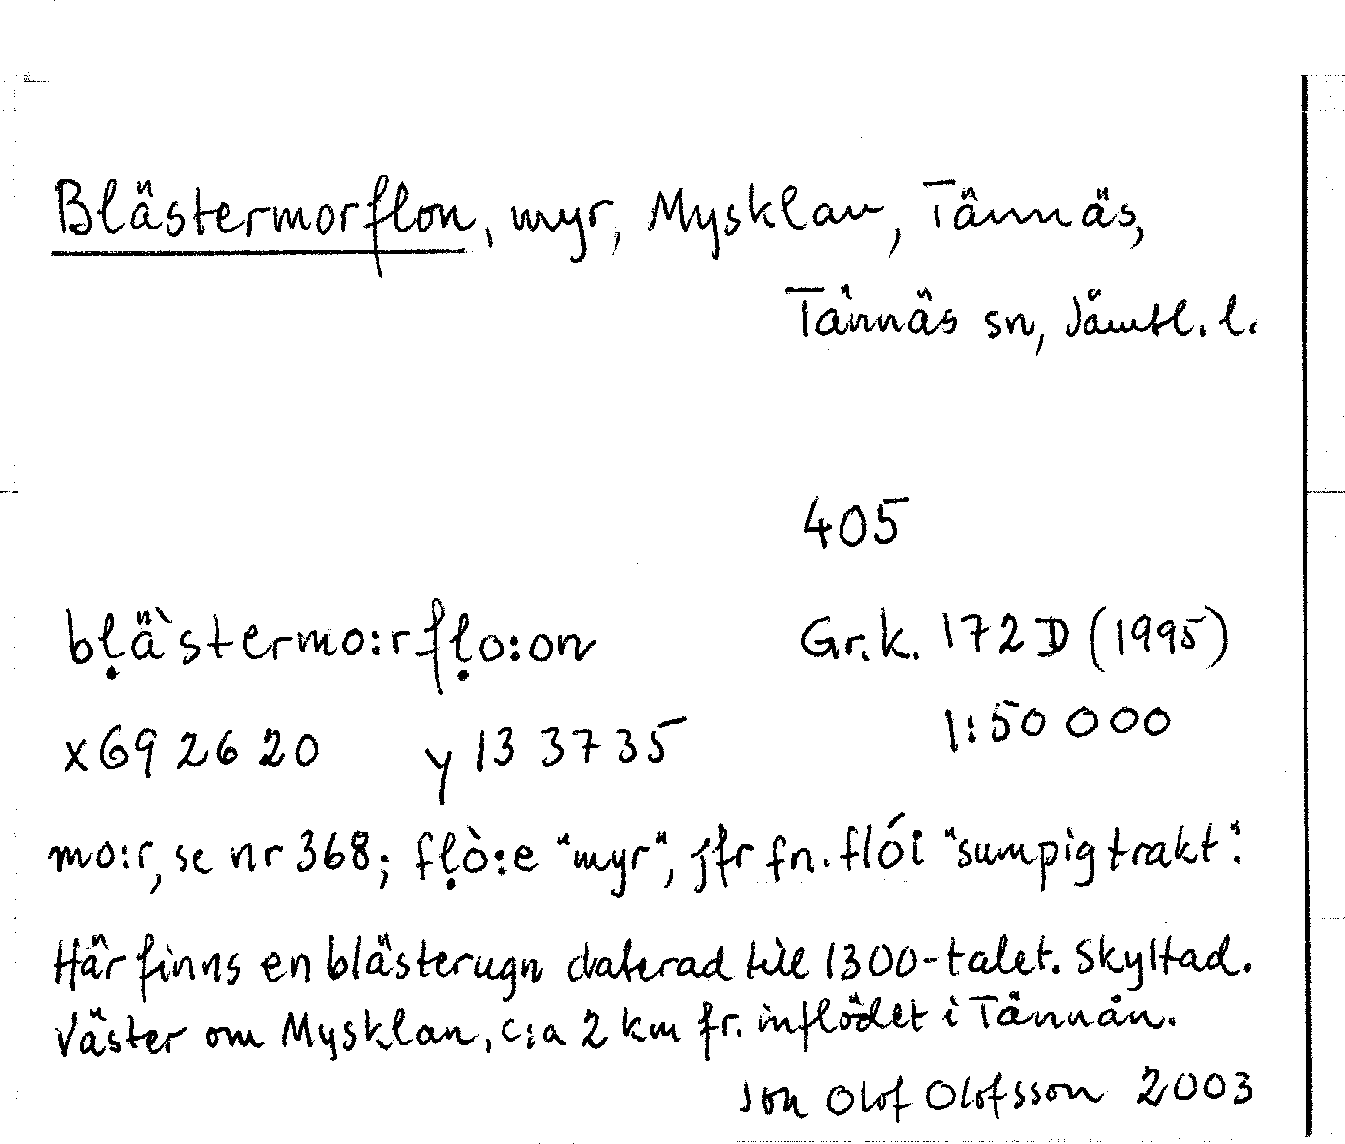 Blästermorflon, myr, Mysklan, Tännäs,
Tännäs sn, Jämtl. l.
405
bḷä̀stermo:rfḷo:on
Gr.k. 172 D (1995)
1:50 000
x 69 26 20 y 13 37 35
mo:r, se nr 368; fḷò:e "myr", jfr fn. flói "sumpig trakt".
Här finns en blästerugn daterad till 1300-talet. Skyltad.
Väster om Mysklan, c:a 2 km fr. inflödet i Tännån.
Jon Olof Olofsson 2003